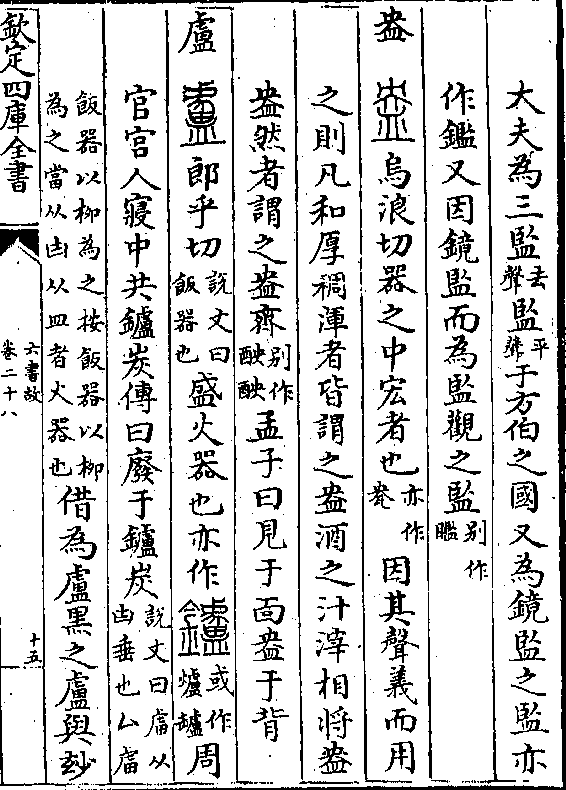 大夫為三監去聲監平聲于方伯之國又為鏡監之監亦
作鑑又因鏡監而為監觀之監别作䁍
盎 烏浪切器之中宏者也亦作㼜因其聲義而用
之則凡和厚稠渾者皆謂之盎酒之汁滓相將盎
盎然者謂之盎齊别作醠醠孟子曰見于面盎于背
盧 郎乎切說文曰飯器也盛火器也亦作 或作爐罏周
官宫人寢中共鑪炭傳曰廢于鑪炭說文曰𧆨从甾䖒聲
飯器以柳為之按飯器以柳為之當从甾从皿者火器也借為盧黑之盧與玅
欽定四庫全書
六書故
卷二十八
十五